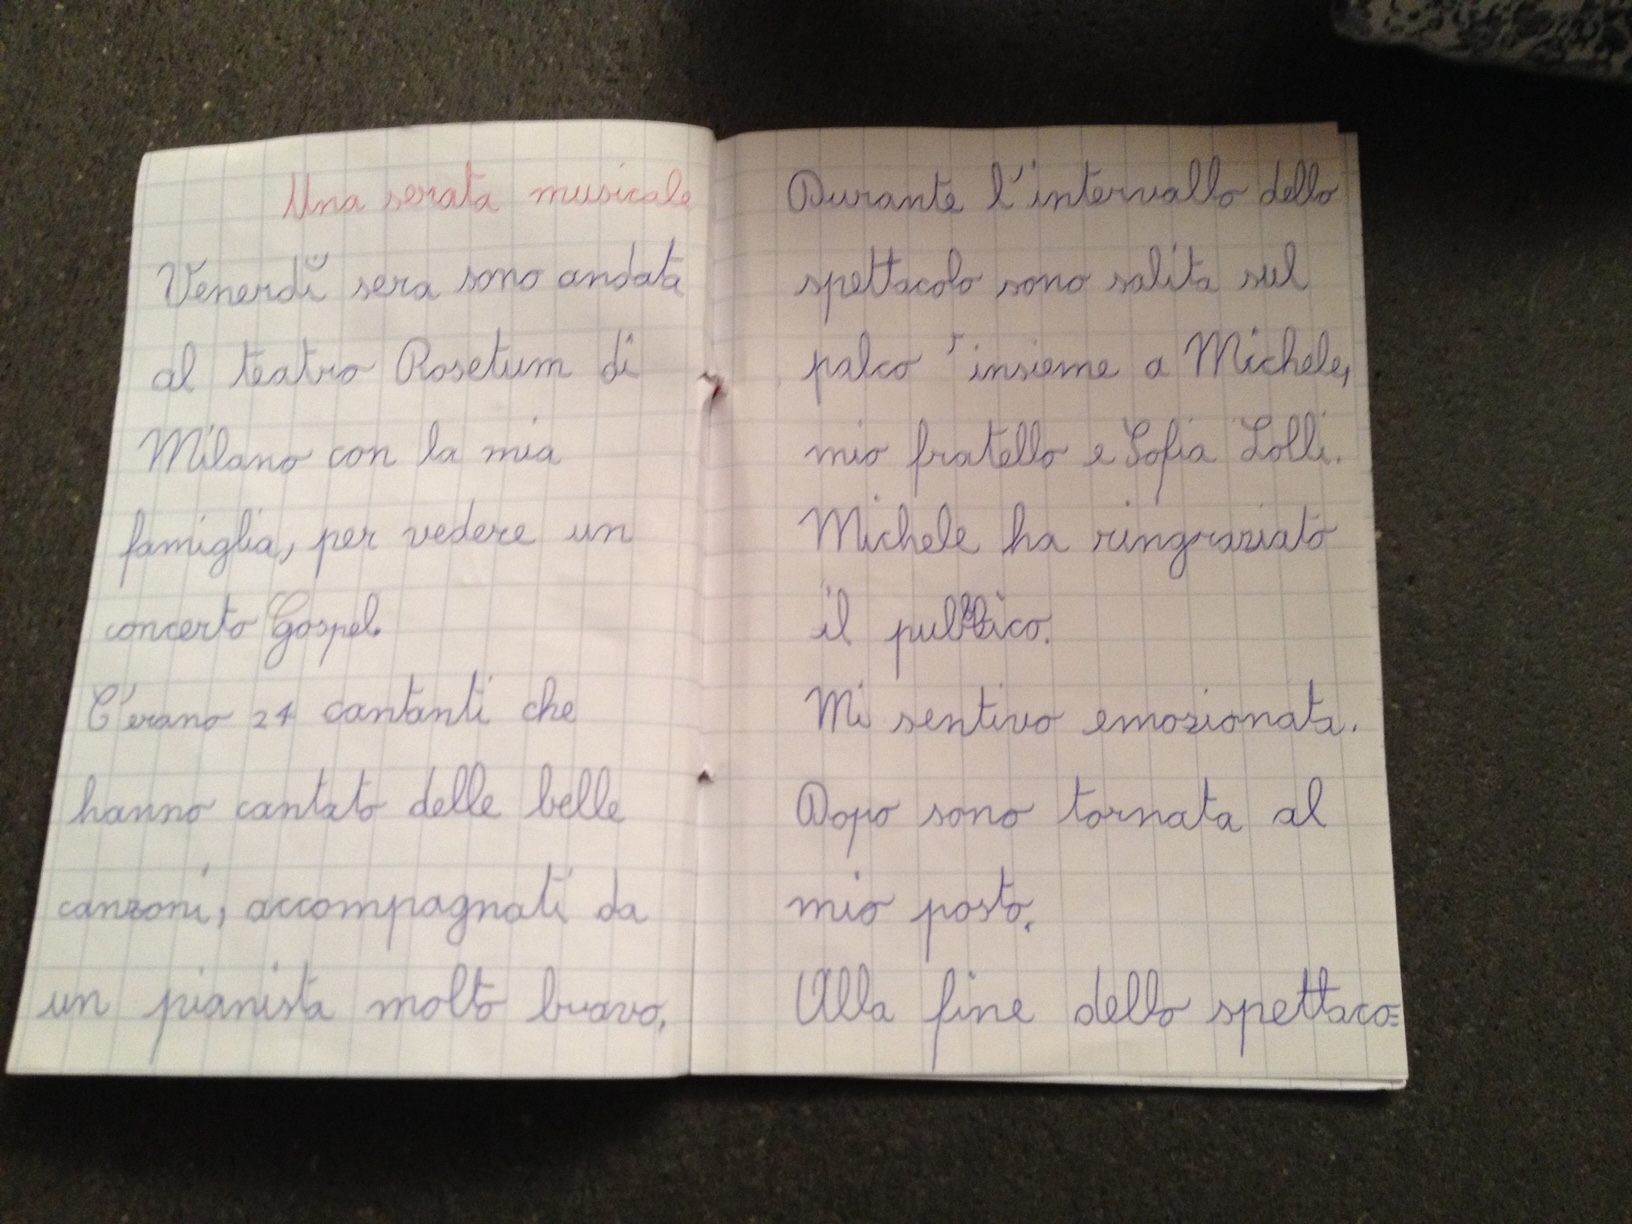 Una serata musicale
Venerdì sera sono andata
al teatro Rosetum di
Milano con la mia
famiglia, per vedere un
concerto Gospel.
C'erano 24 cantanti che
hanno cantato delle belle
canzoni, accompagnati da
un pianista molto bravo.
Durante l'intervallo dello
spettacolo sono salita sul
palco insieme a Michele,
mio fratello e Sofia Lolli.
Michele ha ringraziato
il pubblico.
Mi sentivo emozionata.
Dopo sono tornata al
mio posto.
Alla fine dello spettaco=